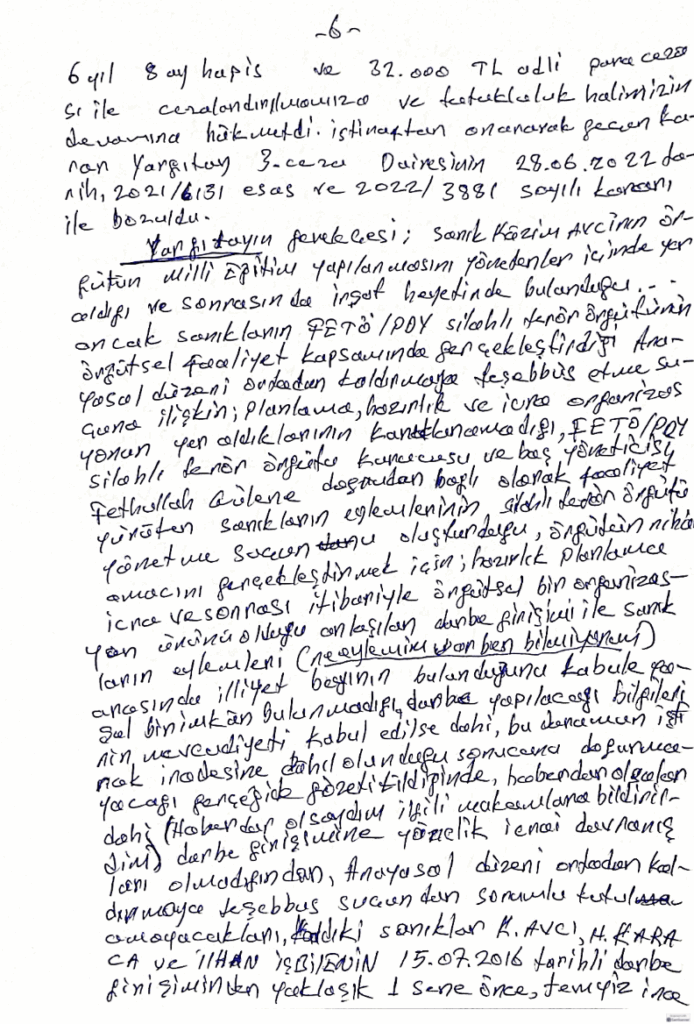 -6-
6 yıl 8 ay hapis ve 32.000 TL adli para ceza
sı ile cezalandırılmamıza ve tutukluluk halimizin
devamına hükmetdi. istinaftan onanarak geçen ka-
rarı Yargıtay 3.ceza Dairesinin 28.06.2022 ta-
rih, 2021/6131 esas ve 2022/3881 sayılı kararı
ile bozuldu.
Yargıtayın gerekçesi; sanık Kazım AVCInın ör-
gütün Milli Eğitim yapılanmasını yönetenler içinde yer
aldığı ve sonrasında irşat heyetinde bulunduğu...
ancak sanıkların FETÖ/PDY silahlı terör örgütünün
örgütsel faaliyet kapsamında gerçekleştirdiği Ana-
yasal düzeni ortadan kaldırmaya teşebbüs etme su-
çuna ilişkin; planlama, hazırlık ve icra organizas
yonun yer aldıklarının kanıtlanamadığı, FETÖ/PDY
silahlı terör örgütü kurucusu ve baş yöneticisi
Fethullah Gülene doğrudan bağlı olarak faaliyet
yürüten sanıkların eylemlerinin silahlı terör örgütü
yönetme suçunu oluşturduğu, örgütün nihai
amacını gerçekleştirmek için; hazırlık planlama
icra ve sonrası itibariyle örgütsel bir organizas-
yon ürünü olduğu anlaşılan darbe girişimi ile sanık
ların eylemleri (ne eylemim var ben bilmiyorum)
arasında illiyet bağının bulunduğunu kabule ya-
sal bir imkân bulunmadığı, darbe yapılacağı bilgileri
nin mevcudiyeti kabul edilse dahi, bu durumun işt
rak iradesine dahil olunduğu sonucunu doğurma-
yacağı gerçeğide gözetildiğinde, haberdar olsalar
dahi (Haberdar olsaydım ilgili makamlara bildirir-
dim) darbe girişimine yönelik icrai davranış
ları olmadığından, Anayasal düzeni ortadan kal-
dırmaya teşebbüs suçundan sorumlu tutul
amayacakları, ki sanıklar K.AVCI, H.KARA
CA ve İLHAN İŞBİLENİN 15.07.2016 tarihli darbe
girişiminden yaklaşık 1 sene önce, temyiz ince